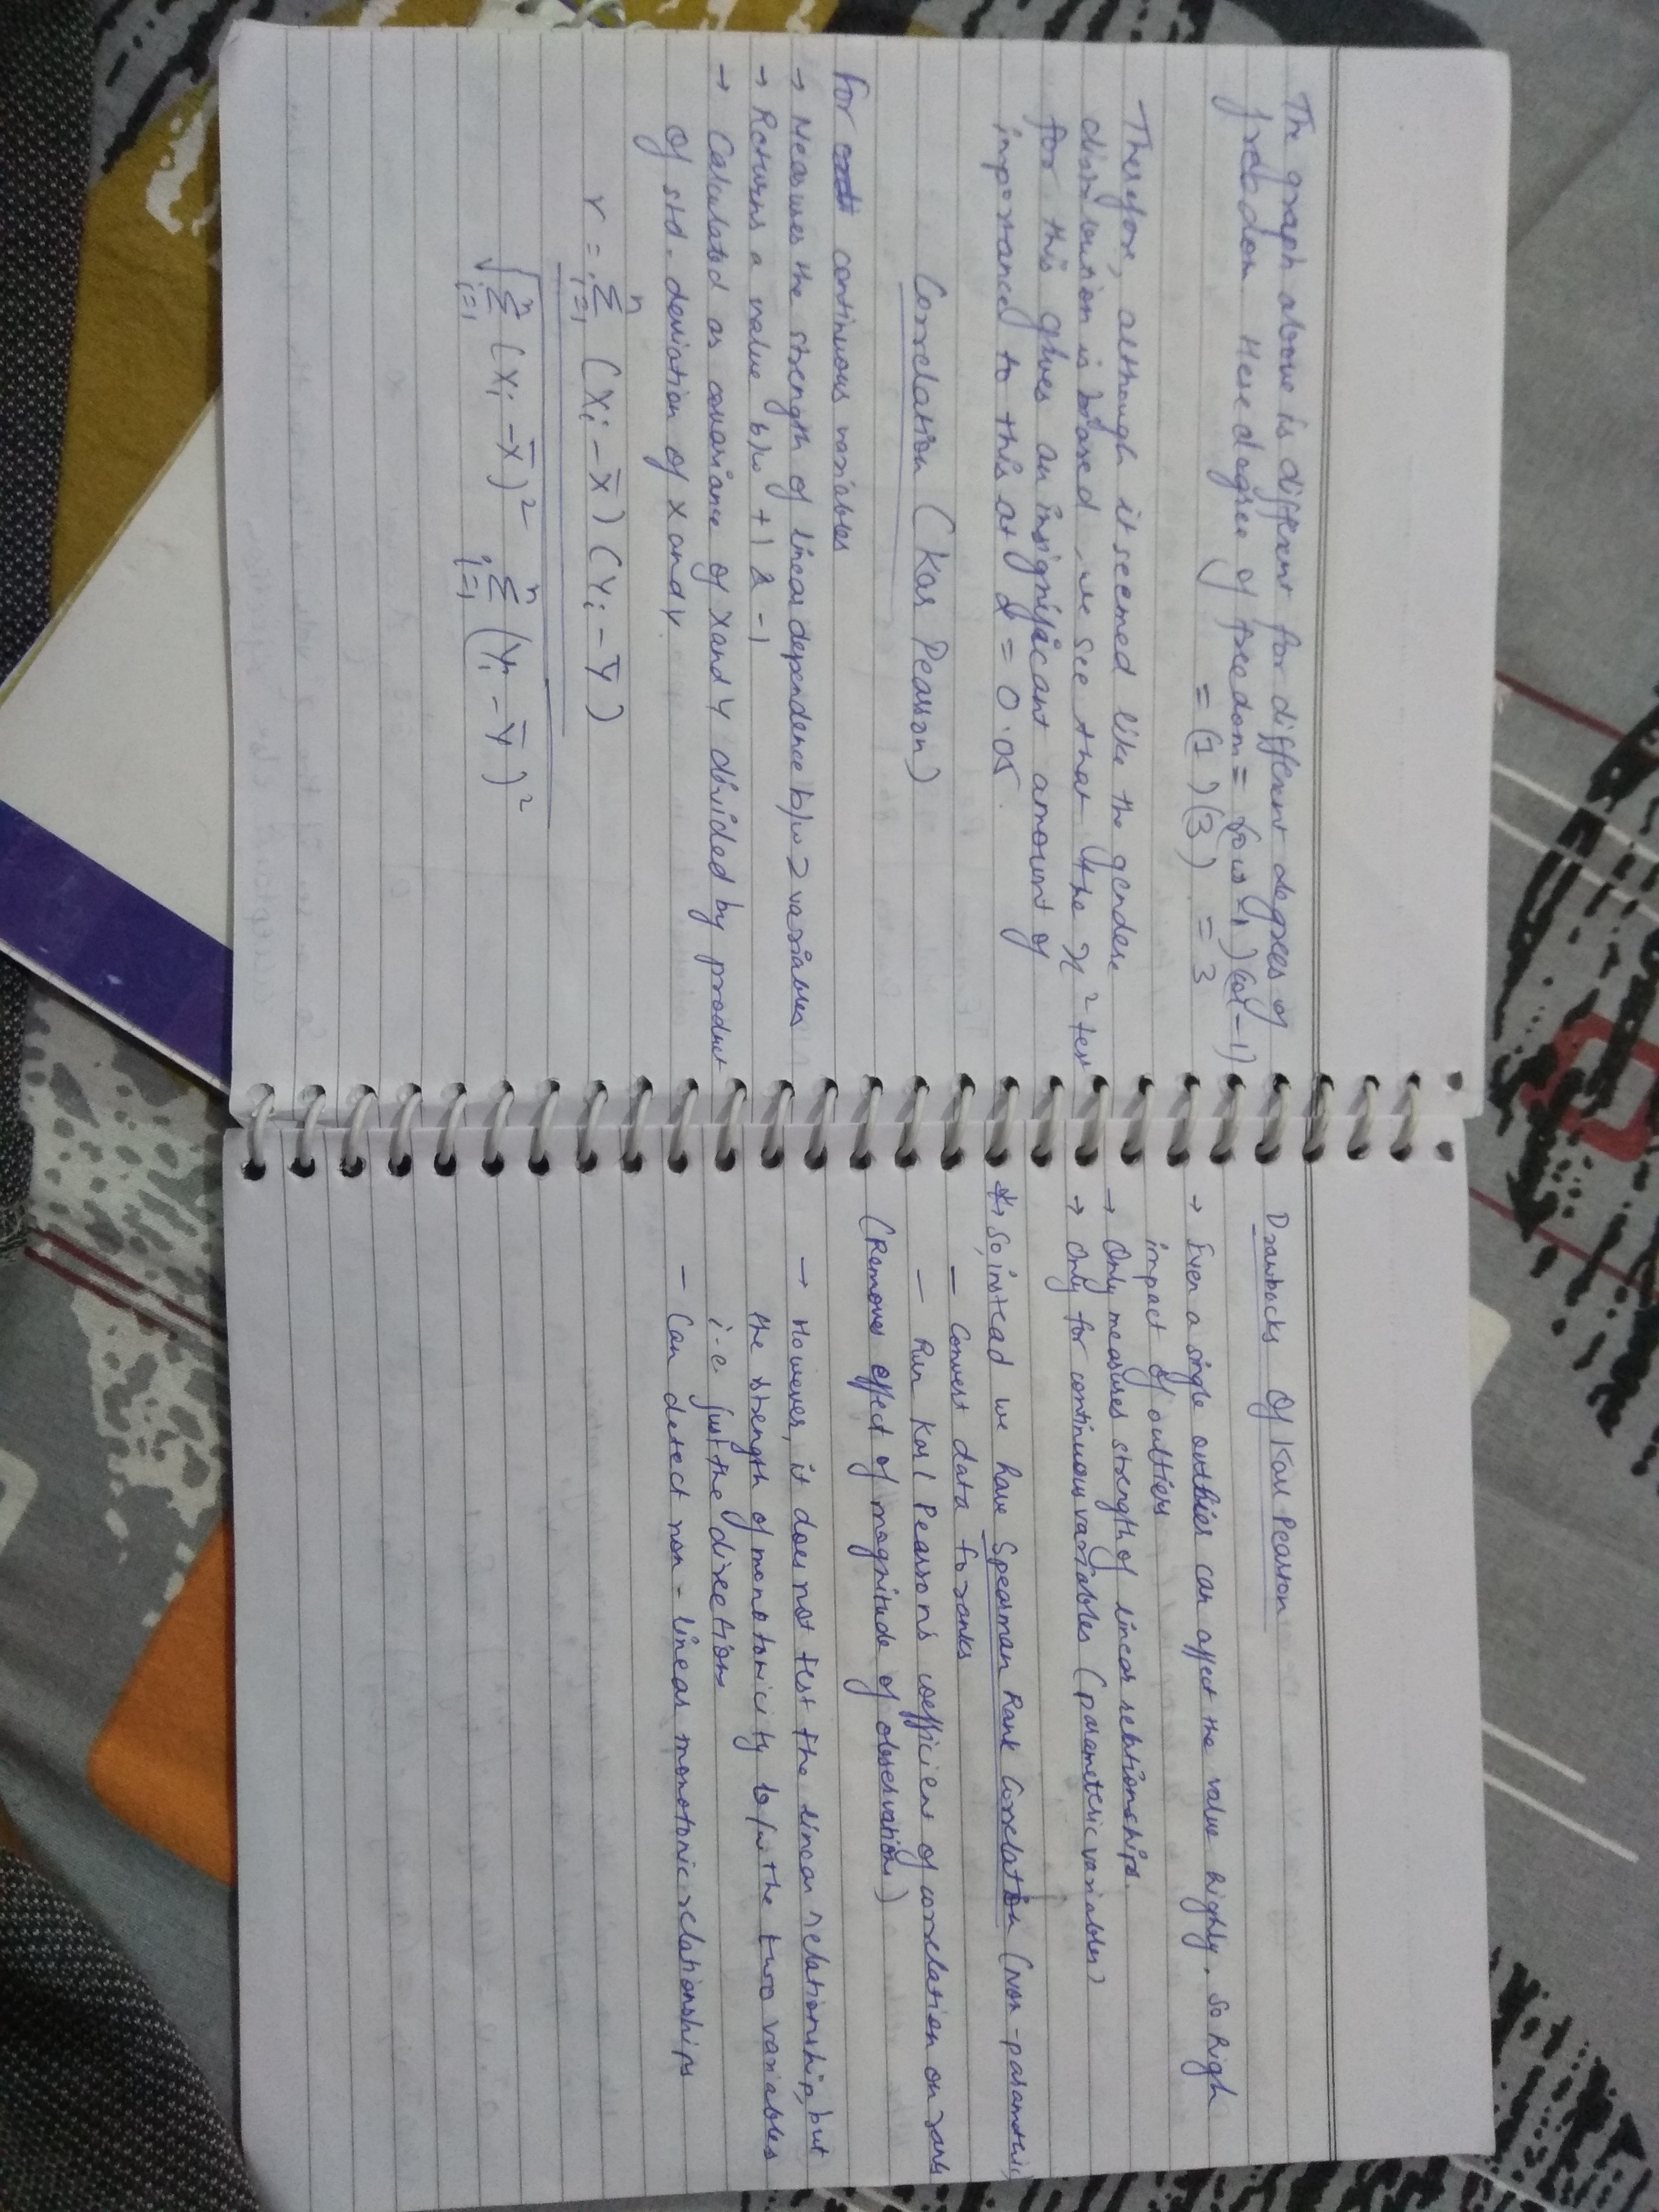 The graph above is different for different degrees of
freedom. Here degree of freedom = (row-1)(col-1)
= (1)(3) = 3
Therefore, although it seemed like the gender
distribution is biased, we see that the χ² test
for this gives an insignificant amount of
importance to this at α = 0.05.
Correlation (Karl Pearson)
For continuous variables
→ Measures the strength of linear dependence b/w 2 variables
→ Returns a value b/w +1 & -1
→ Calculated as covariance of X and Y divided by product
of std. deviation of X and Y.
r = n∑i=1 (Xi - X̄)(Yi - Ȳ)
√ n∑i=1 (Xi - X̄)² n∑i=1 (Yi - Ȳ)²
Drawbacks Of Karl Pearson
→ Even a single outlier can affect the value highly. So high
impact of outliers
→ Only measures strength of linear relationships.
→ Only for continuous variables (parametric variables)
* → So, instead we have Spearman Rank Correlation (Non-parametric)
- Convert data to ranks
- Run Karl Pearson's coefficient of correlation on ranks
(Removes effect of magnitude of observation)
→ However, it does not test the linear relationship, but
the strength of monotonicity b/w the two variables
i.e. just the direction
- Can detect non-linear monotonic relationships